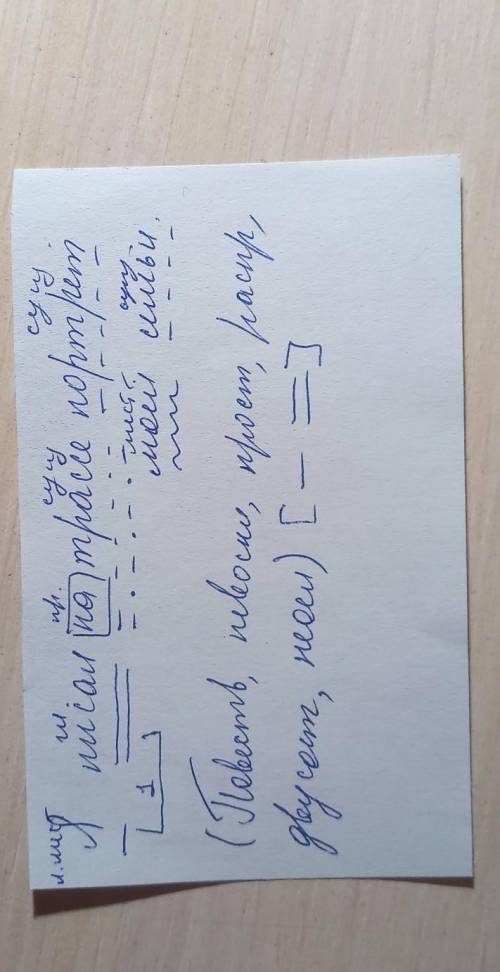 л. мест. гл. пр. сущ. сущ.
Я писал на трассе портрет
мест. сущ.
моей семьи.
1
(Повесть, невоскл, прост, распр,
двусост, неосл) [ — = ]